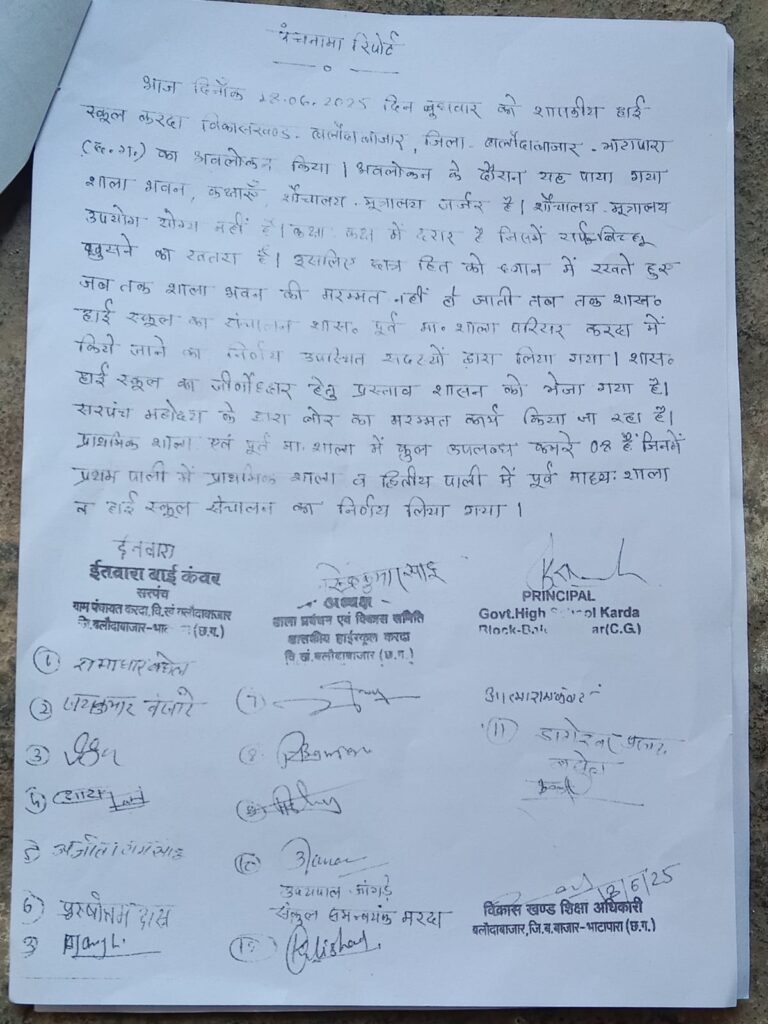 पंचनामा रिपोर्ट
आज दिनाँक 18.06.2025 दिन बुधवार को शासकीय हाई
स्कूल करदा विकासखण्ड - बलौदाबाजार, जिला - बलौदाबाजार - भाटापारा
(छ.ग.) का अवलोकन किया। अवलोकन के दौरान यह पाया गया
शाला भवन, कक्षाएँ, शौचालय - मूत्रालय जर्जर है। शौचालय - मूत्रालय
उपयोग योग्य नहीं है। कक्षा कक्ष में दरार है जिसमें सर्फ बिच्छू
घुसने का खतरा है। इसलिए छात्र हित को ध्यान में रखते हुए
जब तक शाला भवन की मरम्मत नहीं हो जाती तब तक शास॰
हाई स्कूल का संचालन शास॰ पूर्व मा॰ शाला परिसर करदा में
किये जाने का निर्णय उपस्थित सदस्यों द्वारा लिया गया। शास॰
हाई स्कूल का जीर्णोद्धार हेतु प्रस्ताव शासन को भेजा गया है।
सरपंच महोदया के द्वारा बोर का मरम्मत कार्य किया जा रहा है।
प्राथमिक शाला एवं पूर्व मा॰ शाला में कुल उपलब्ध कमरे 08 हैं जिनमें
प्रथम पाली में प्राथमिक शाला व द्वितीय पाली में पूर्व माध्य॰ शाला
व हाई स्कूल संचालन का निर्णय लिया गया।
इतवारा
ईतवारा बाई कंवर
सरपंच
ग्राम पंचायत करदा, वि.खं बलौदाबाजार
जि.बलौदाबाजार-भाटा (छ.ग.)
अध्यक्ष
शाला प्रबंधन एवं विकास समिति
शासकीय हाईस्कूल करदा
वि.खं.बलौदाबाजार (छ.ग.)
PRINCIPAL
Govt.High School Karda
Block-Bal ar(C.G.)
(1) रामाधार बघेल
(2) जयकुमार बंजारे
(3)
(4)
5)
6) पुरुषोत्तम दास
(7)
(8)
आत्माराम कंवर
(11)
उदयपाल जांगड़े
संकुल समन्वयक मरदा
18/6/25
विकास खण्ड शिक्षा अधिकारी
बलौदाबाजार,जि.ब.बाजार-भाटापारा (छ.ग.)